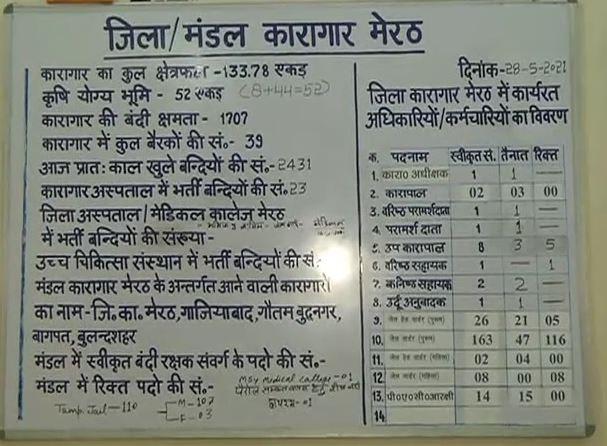 जिला/मंडल कारागार मेरठ
कारागार का कुल क्षेत्रफल -133.78 एकड़
कृषि योग्य भूमि - 52 एकड़ (8+44=52)
कारागार की बंदी क्षमता - 1707
कारागार में कुल बैरकों की सं॰- 39
आज प्रातः काल खुले बन्दियों की सं॰-2431
कारागार अस्पताल में भर्ती बन्दियों की सं॰23
जिला अस्पताल/मेडिकल कालेज मेरठ
में भर्ती बन्दियों की संख्या-
उच्च चिकित्सा संस्थान में भर्ती बन्दियों की सं॰
मंडल कारागार मेरठ के अन्तर्गत आने वाली कारागारों
का नाम-जि.का.मेरठ,गाजियाबाद,गौतम बुद्धनगर,
बागपत,बुलन्दशहर
मंडल में स्वीकृत बंदी रक्षक संवर्ग के पदो की सं.-
मंडल में रिक्त पदो की सं.-
MSY Medical College -01
Temp Jail - 110
M-107
F-03
दिनांक-28-5-2021
जिला कारागार मेरठ में कार्यरत
अधिकारियों/कर्मचारियों का विवरण
क. पदनाम स्वीकृत सं. तैनात रिक्त
1. कारा० अधीक्षक 1 1 —
2. कारापाल 02 03 00
3. वरिष्ठ परामर्शदाता 1 1 —
4. परामर्श दाता 1 1 —
5. उप कारापाल 8 3 5
6. वरिष्ठ सहायक 1 — 1
7. कनिष्ठ सहायक 2 2 —
8. उर्दू अनुवादक 1 1 —
9. जेल हेड वार्डर (पुरुष) 26 21 05
10. जेल वार्डर (पुरुष) 163 47 116
11. जेल हेड वार्डर (महिला) 02 04 00
12. जेल वार्डर (महिला) 08 00 08
13. पी०ए०सी०आरसी 14 15 00
14.